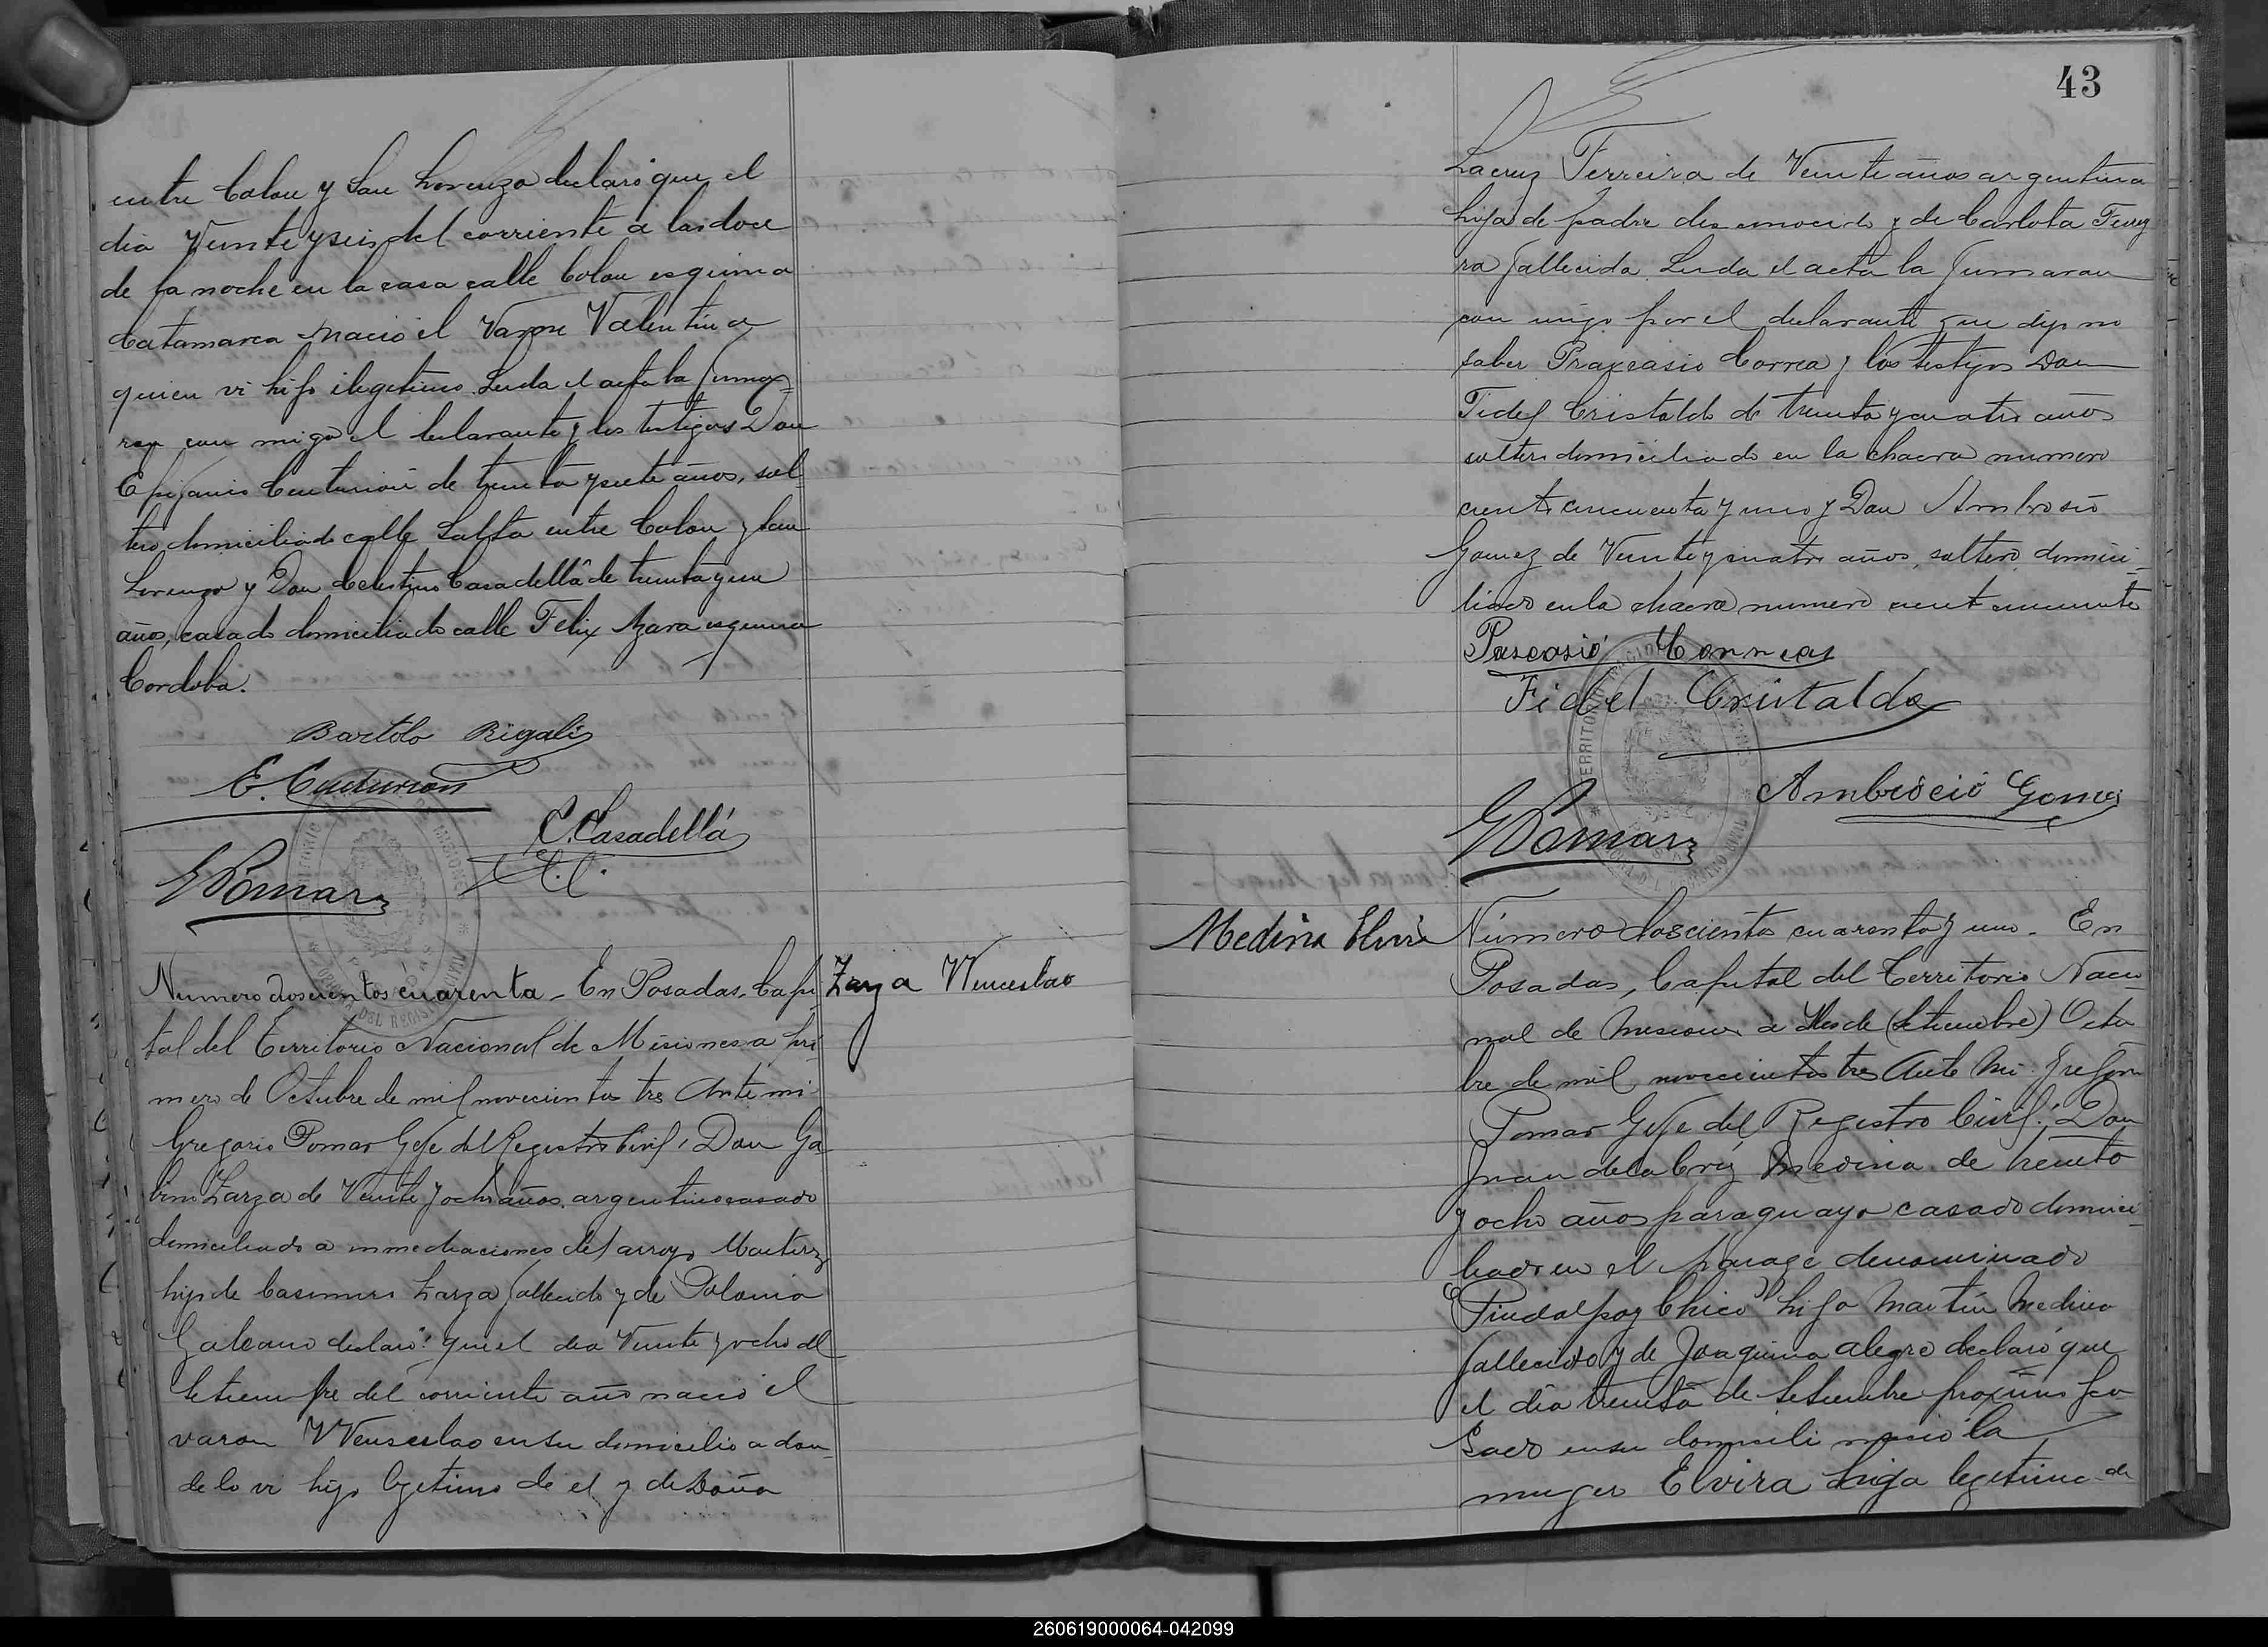 entre Colon y San Lorenzo declaró que el
dia Veinte y seis del corriente a las doce
de la noche en la casa calle Colon esquina
Catamarca nació el Varon Valentin a
quien vi hijo ilegitimo. Leida el acta la firma=
ron con migo el declarante y los testigos Don
Epifanio Centurión de treinta y siete años, sol
tero domiciliado calle Salta entre Colon y San
Lorenzo y Don Celestino Casadellá de treinta y un
años, casado domiciliado calle Felix Azara esquina
Cordoba.
Bartolo Rigali
E. Centurion
C. Casadellá
G Pomar
Numero doscientos cuarenta - En Posadas, Capi
Zarza Wenceslao
tal del Territorio Nacional de Misiones a pri
mero de Octubre de mil novecientos tres Ante mi
Gregorio Pomar Gefe del Registro Civil, Don Ga
bino Zarza de Veinte y ocho años argentino casado
domiciliado a inmediaciones del arroyo Martires
hijo de Casimiro Zarza fallecido y de Polonia
Galeano declaró: que el dia Veinte y ocho del
Setiembre del corriente año nació el
varon Wenseslao en su domicilio a don=
de lo vi hijo legitimo de el y de Doña
43
Lacruz Ferreira de Veinte años argentina
hija de padre desconocido y de Carlota Ferrey
ra fallecida. Leida el acta la firmaron
con migo por el declarante que dijo no
saber Praxcasio Correa y los testigos Don
Fidel Cristaldo de treinta y cuatro años
soltero domiciliado en la chacra numero
ciento cincuenta y uno y Don Ambrosio
Gomez de Veinte y cuatro años, soltero, domici=
liado en la chacra numero ciento cincuenta
Pascasio Correas
Fidel Cristaldo
Ambrocio Gomez
G Pomar
Medina Elvira
Número doscientos cuarenta y uno - En
Posadas, Capital del Territorio Nacio
nal de Misiones a dos de (Setiembre) Octu
bre de mil novecientos tres Ante Mi Gregorio
Pomar Gefe del Registro Civil: Don
Juan de la Cruz Medina de treinta
y ocho años paraguayo casado domici=
liado en el parage denominado
"Pindapoy Chico" hijo Martin Medina
fallecido y de Joaquina alegre declaró que
el dia treinta de Setiembre proximo pa
sado en su domicili nació la
muger Elvira hija legitima de